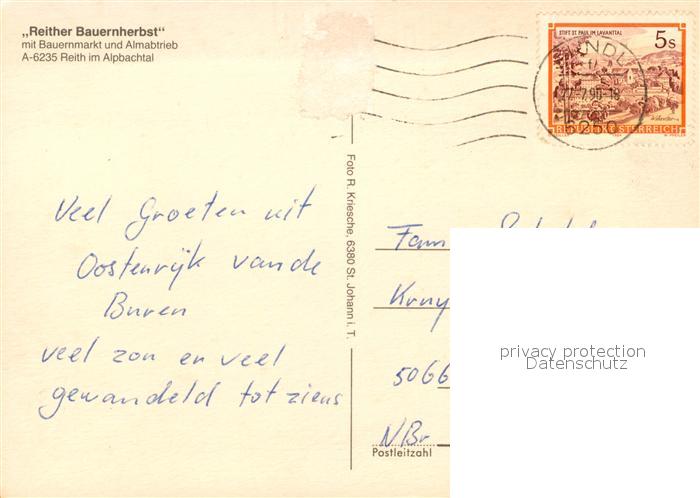 „Reither Bauernherbst“
mit Bauernmarkt und Almabtrieb
A-6235 Reith im Alpbachtal
STIFT ST. PAUL IM LAVANTTAL
5s
REPUBLIK ÖSTERREICH
Foto R. Kriesche, 6380 St. Johann i. T.
Veel Groeten uit
Oostenrijk van de
Buren
veel zon en veel
gewandeld tot ziens
Fam
5066
NBr
Postleitzahl
privacy protection
Datenschutz